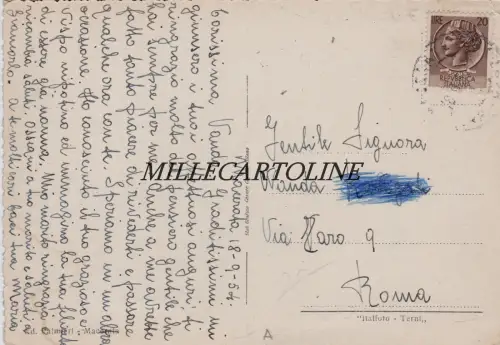 Macerata 18-9-54
Carissima Vanda, Graditissimi mi
giunsero i tuoi affettuosi auguri, ti
ringrazio molto del pensiero gentile che
hai sempre per me. Anche a me avrebbe
fatto tanto piacere di rivederti e passare
qualche ora con te. Speriamo in un'altra
occasione. Ho conosciuto il tuo grazioso e
vispo nipotino ed immagino la tua felicità
di essere già nonna. Mio marito ringrazia e
ricambia saluti. Ossequi a tuo marito e saluti a
a te molti cari baci tua Maria
Ed. - Macerata
20
ITALIANA
Gentile Signora
Wanda
Via Maro 9
Roma
"Italfoto - Terni"
A
MILLECARTOLINE